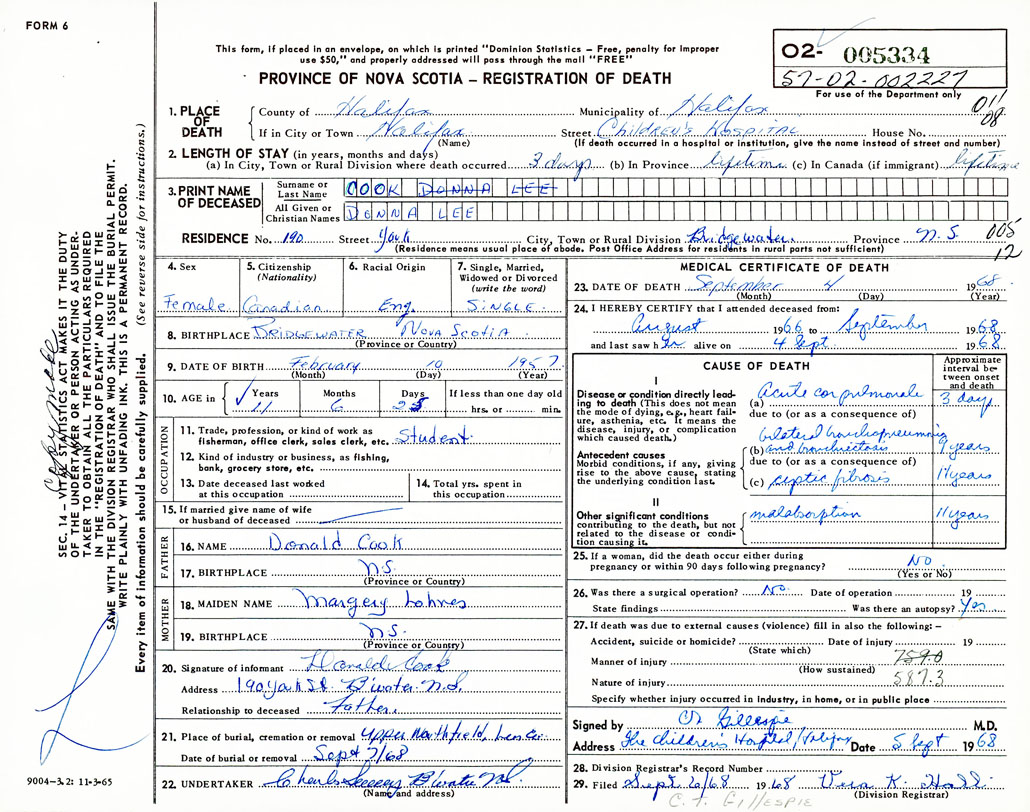 FORM 6
This form, if placed in an envelope, on which is printed "Dominion Statistics – Free, penalty for improper
use $50," and properly addressed will pass through the mail "FREE"
PROVINCE OF NOVA SCOTIA – REGISTRATION OF DEATH
02- 005334
57-02-002227
For use of the Department only
011
08
1. PLACE OF DEATH
County of Halifax Municipality of Halifax
If in City or Town Halifax Street Children's Hospital House No.
(Name) (If death occurred in a hospital or institution, give the name instead of street and number)
2. LENGTH OF STAY (in years, months and days)
(a) In City, Town or Rural Division where death occurred 3 days (b) In Province lifetime (c) In Canada (if immigrant) lifetime
3. PRINT NAME OF DECEASED
Surname or Last Name COOK DONNA LEE
All Given or Christian Names DONNA LEE
RESIDENCE No. 190 Street York City, Town or Rural Division Bridgewater Province N.S. 005
(Residence means usual place of abode. Post Office Address for residents in rural parts not sufficient) 12
4. Sex Female
5. Citizenship (Nationality) Canadian
6. Racial Origin Eng.
7. Single, Married, Widowed or Divorced (write the word) SINGLE
8. BIRTHPLACE BRIDGEWATER NOVA SCOTIA
(Province or Country)
9. DATE OF BIRTH February 10 1957
(Month) (Day) (Year)
10. AGE in Years 11 Months 6 Days 25 If less than one day old hrs. or min.
OCCUPATION
11. Trade, profession or kind of work as
fisherman, office clerk, sales clerk, etc. Student
12. Kind of industry or business, as fishing,
bank, grocery store, etc.
13. Date deceased last worked
at this occupation
14. Total yrs. spent in
this occupation
15. If married give name of wife
or husband of deceased
FATHER
16. NAME Donald Cook
17. BIRTHPLACE N.S.
(Province or Country)
MOTHER
18. MAIDEN NAME Margery Lohnes
19. BIRTHPLACE N.S.
(Province or Country)
20. Signature of informant Donald Cook
Address 190 York St. B'water N.S.
Relationship to deceased Father
21. Place of burial, cremation or removal Upper Northfield, Lun Co
Date of burial or removal Sept 7/68
22. UNDERTAKER B'water N.S.
(Name and address)
MEDICAL CERTIFICATE OF DEATH
23. DATE OF DEATH September 4 1968
(Month) (Day) (Year)
24. I HEREBY CERTIFY that I attended deceased from:
August 1966 to September 1968
and last saw her alive on 4 Sept 1968
CAUSE OF DEATH
Approximate interval between onset and death
I
Disease or condition directly leading to death (This does not mean
the mode of dying, e.g., heart failure, asthenia, etc. It means the
disease, injury, or complication
which caused death.)
(a) Acute cor pulmonale 3 days
due to (or as a consequence of)
Antecedent causes
Morbid conditions, if any, giving
rise to the above cause, stating
the underlying condition last.
bilateral bronchopneumonia
(b) and bronchiectasis years
due to (or as a consequence of)
(c) cystic fibrosis 11 years
II
Other significant conditions
contributing to the death, but not
related to the disease or condition causing it.
malabsorption 11 years
25. If a woman, did the death occur either during
pregnancy or within 90 days following pregnancy? NO
(Yes or No)
26. Was there a surgical operation? No Date of operation 19
State findings Was there an autopsy? Yes
27. If death was due to external causes (violence) fill in also the following: –
Accident, suicide or homicide? Date of injury 19
(State which)
Manner of injury 759.0
(How sustained)
Nature of injury 587.3
Specify whether injury occurred in industry, in home, or in public place
Signed by Gillespie M.D.
Address The Children's Hospital, Halifax Date 5 Sept 1968
28. Division Registrar's Record Number
29. Filed Sept 6/68 1968 Vera K.
(Division Registrar)
C. T. GILLESPIE
SEC. 14 – VITAL STATISTICS ACT MAKES IT THE DUTY
OF THE UNDERTAKER OR PERSON ACTING AS UNDERTAKER TO OBTAIN ALL THE PARTICULARS REQUIRED
IN THE "REGISTRATION OF DEATH" AND TO FILE THE
SAME WITH THE DIVISION REGISTRAR WHO SHALL ISSUE THE BURIAL PERMIT.
WRITE PLAINLY WITH UNFADING INK. THIS IS A PERMANENT RECORD.
Every item of information should be carefully supplied. (See reverse side for instructions.)
9004-3.2: 11-3-65